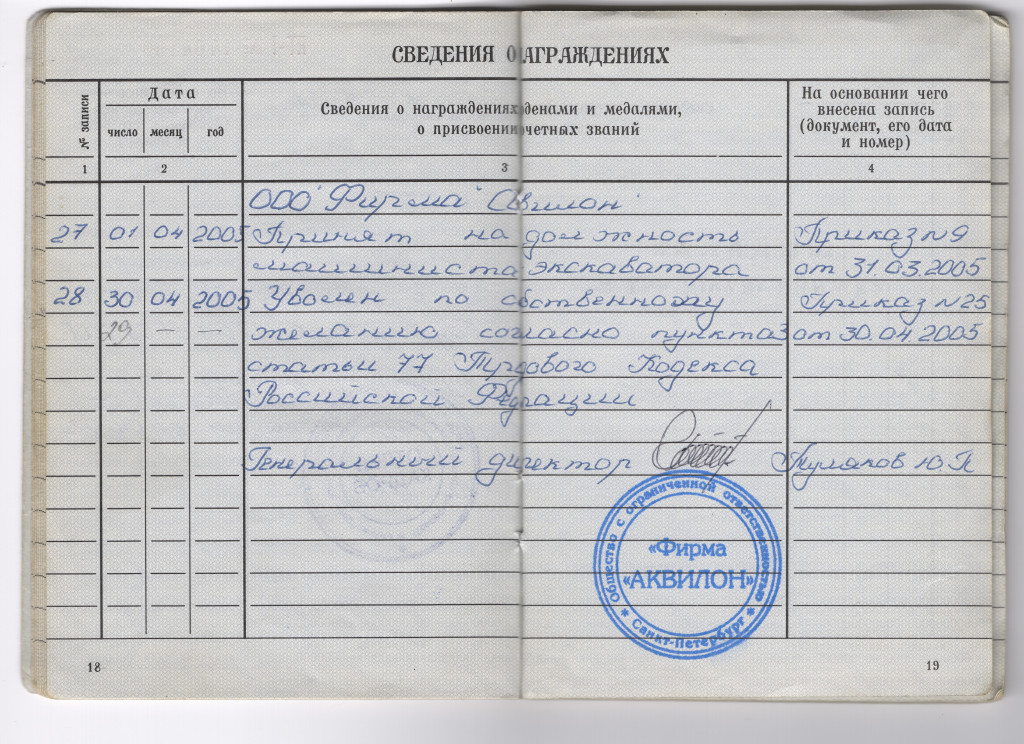 СВЕДЕНИЯ О НАГРАЖДЕНИЯХ
№ записи
Дата
число месяц год
Сведения о награждениях денами и медалями,
о присвоении четных званий
На основании чего
внесена запись
(документ, его дата
и номер)
1 2 3 4
ООО "Фирма "Аквилон"
27 01 04 2005 Принят на должность Приказ №9
машиниста экскаватора от 31.03.2005
28 30 04 2005 Уволен по собственному Приказ №25
29 — — желанию согласно пункта 3 от 30.04.2005
статьи 77 Трудового Кодекса
Российской Федрации
Генеральный директор Туляков Ю.П
Общество с ограниченной ответственностью
«Фирма
«АКВИЛОН»
* Санкт-Петербург *
18
19